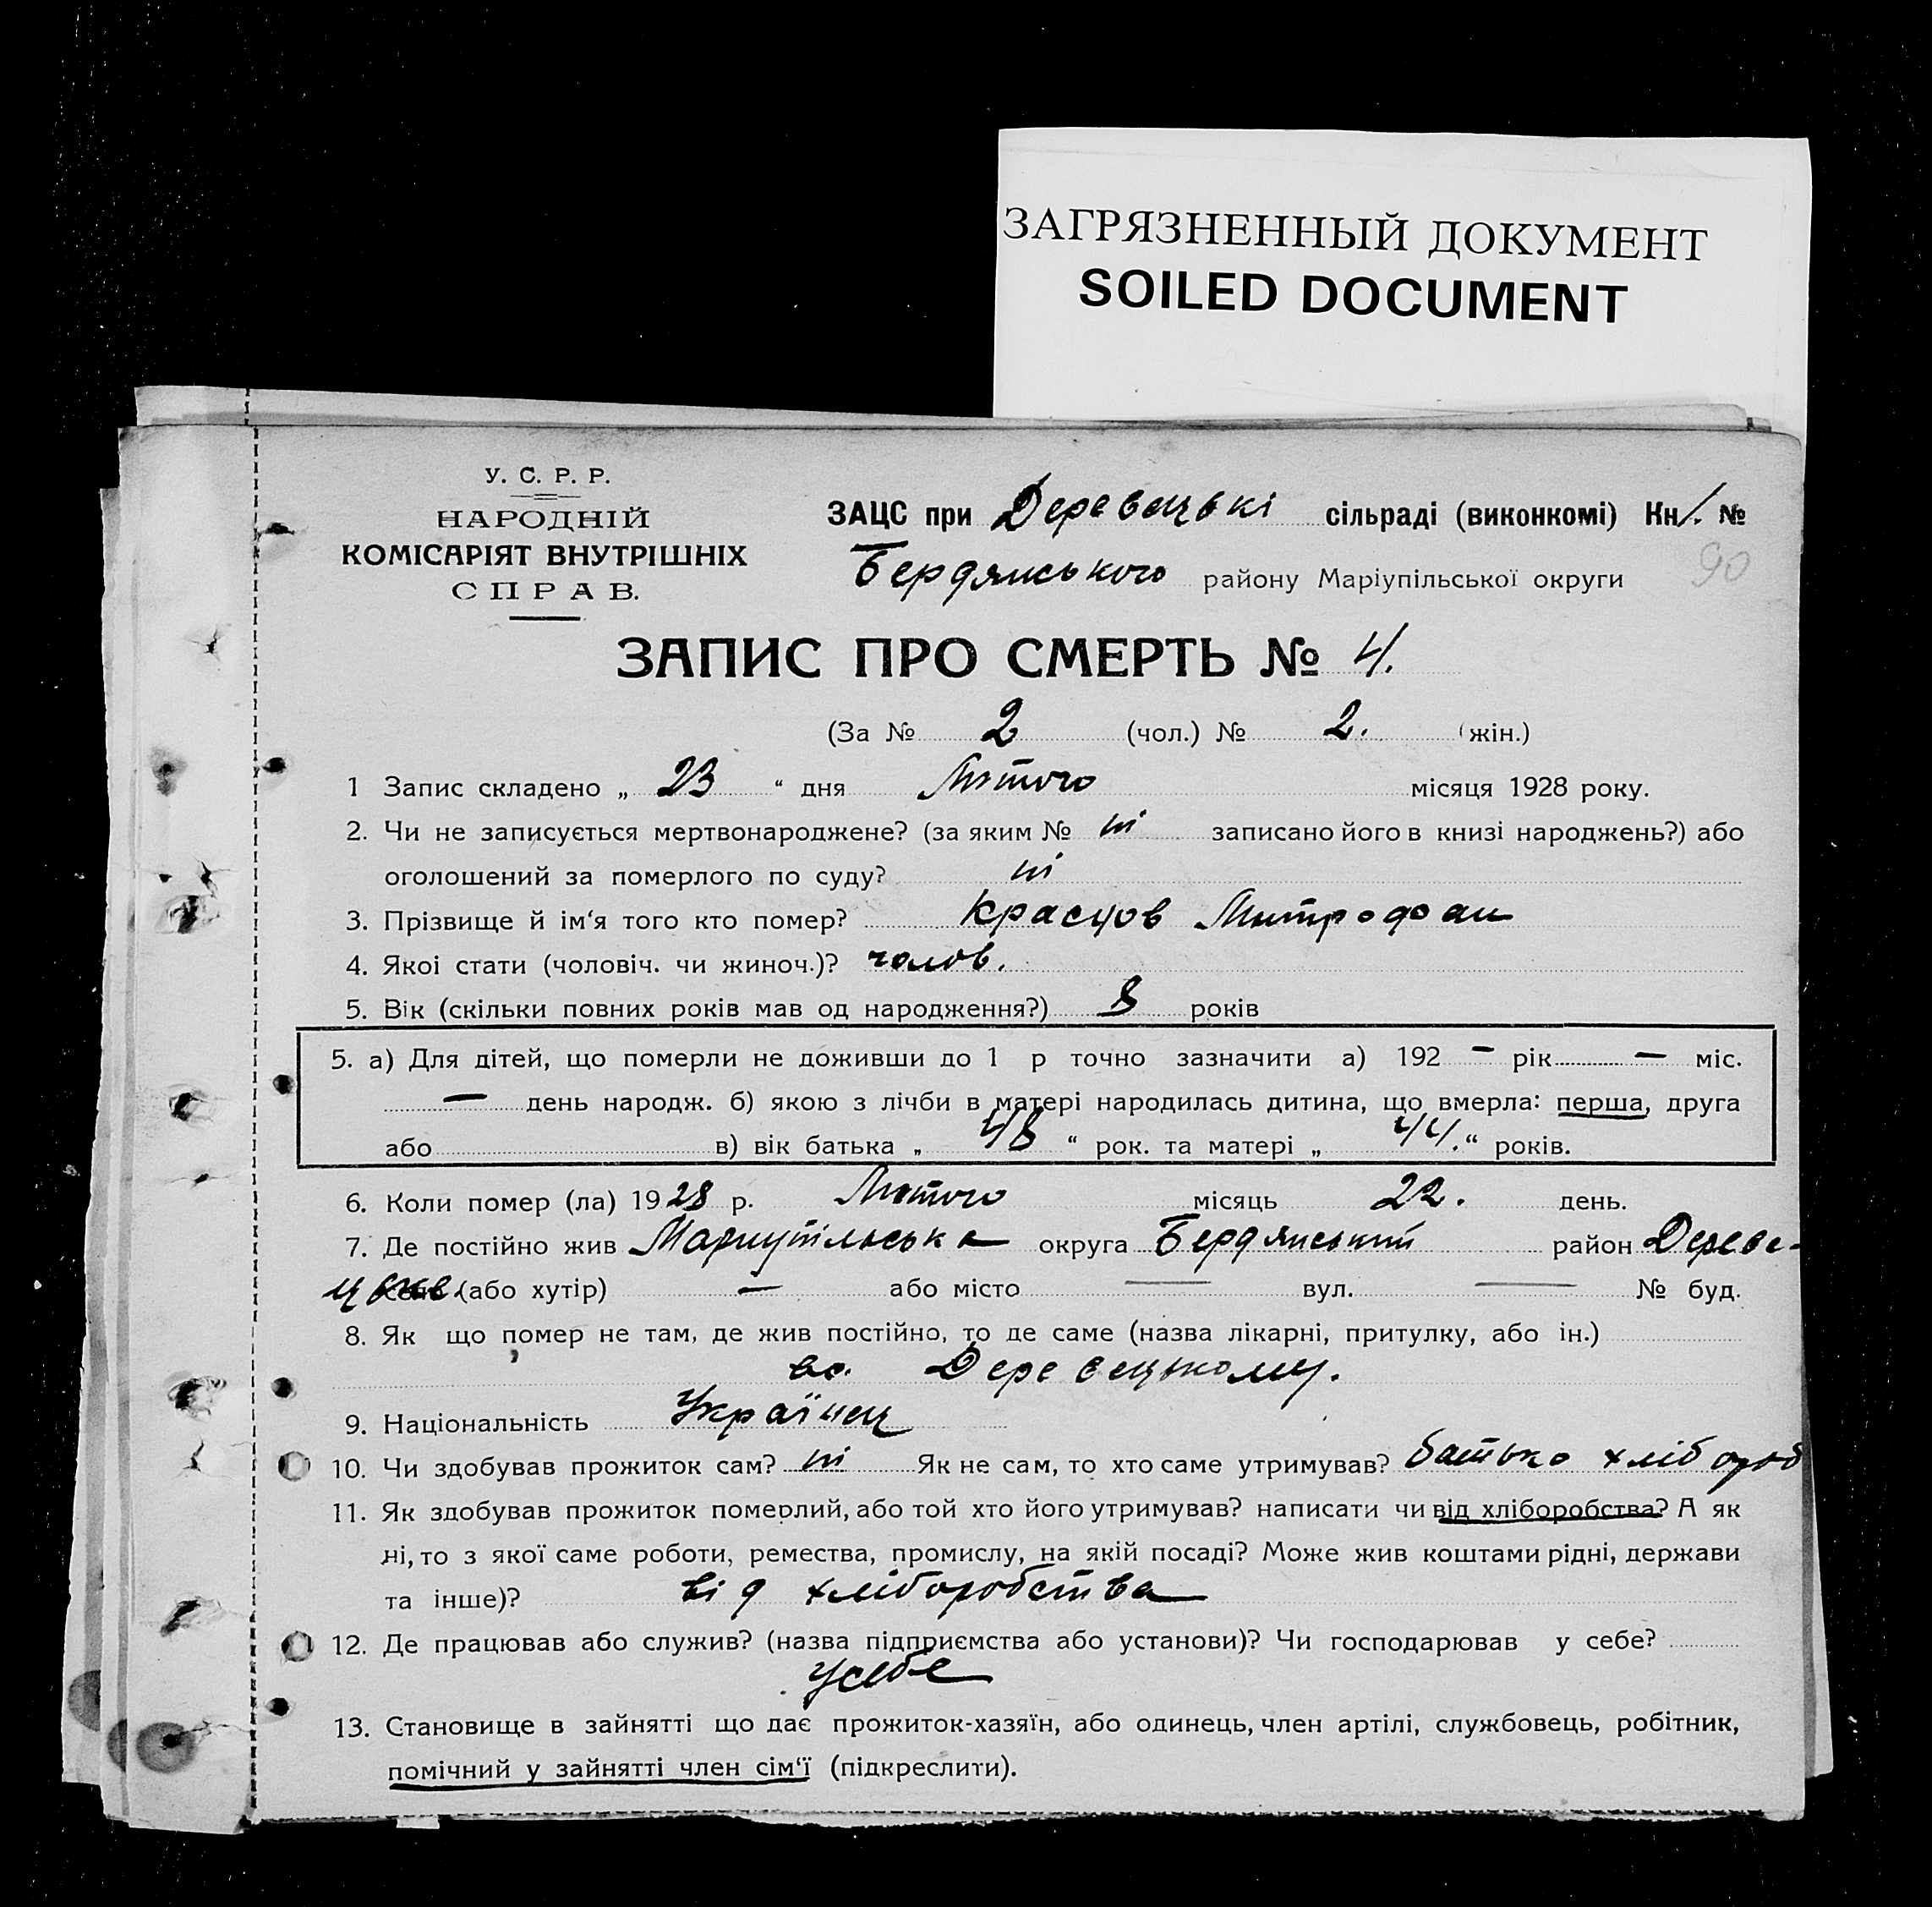 ЗАГРЯЗНЕННЫЙ ДОКУМЕНТ
SOILED DOCUMENT
У. С. Р. Р.
НАРОДНІЙ
КОМІСАРІЯТ ВНУТРІШНІХ
СПРАВ.
ЗАЦС при Деревецькі сільраді (виконкомі) Кн 1. №
Бердянського району Маріупільської округи 90
ЗАПИС ПРО СМЕРТЬ № 4.
(За № 2 (чол.) № 2. (жін.)
1 Запис складено „ 23 “ дня Лютого місяця 1928 року.
2. Чи не записується мертвонароджене? (за яким № ні записано його в книзі народжень?) або
оголошений за померлого по суду? ні
3. Прізвище й ім‘я того кто помер? Красцов Митрофан
4. Якоі стати (чоловіч. чи жиноч.)? чолов.
5. Вік (скільки повних років мав од народження?) 8 років
5. а) Для дітей, що померли не доживши до 1 р точно зазначити а) 192 – рік — міс.
— день народж. б) якою з лічби в матері народилась дитина, що вмерла: перша, друга
або в) вік батька „ 48 “ рок. та матері „ 44. “ років.
6. Коли помер (ла) 1928 р. Лютого місяць 22. день.
7. Де постійно жив Мариупільська округа Бердянський район Дереве-
цьке. село (або хутір) — або місто — вул. — № буд.
8. Як що помер не там, де жив постійно, то де саме (назва лікарні, притулку, або ін.)
вс. Деревецькому.
9. Національність Українец
10. Чи здобував прожиток сам? ні Як не сам, то хто саме утримував? батько хлібороб
11. Як здобував прожиток померлий, або той хто його утримував? написати чи від хліборобства? А як
ні, то з якої саме роботи, ремества, промислу, на якій посаді? Може жив коштами рідні, держави
та інше)? від хліборобства
12. Де працював або служив? (назва підприємства або установи)? Чи господарював у себе?
усебе
13. Становище в зайнятті що дає прожиток-хазяїн, або одинець, член артілі, службовець, робітник,
помічний у зайнятті член сім‘ї (підкреслити).